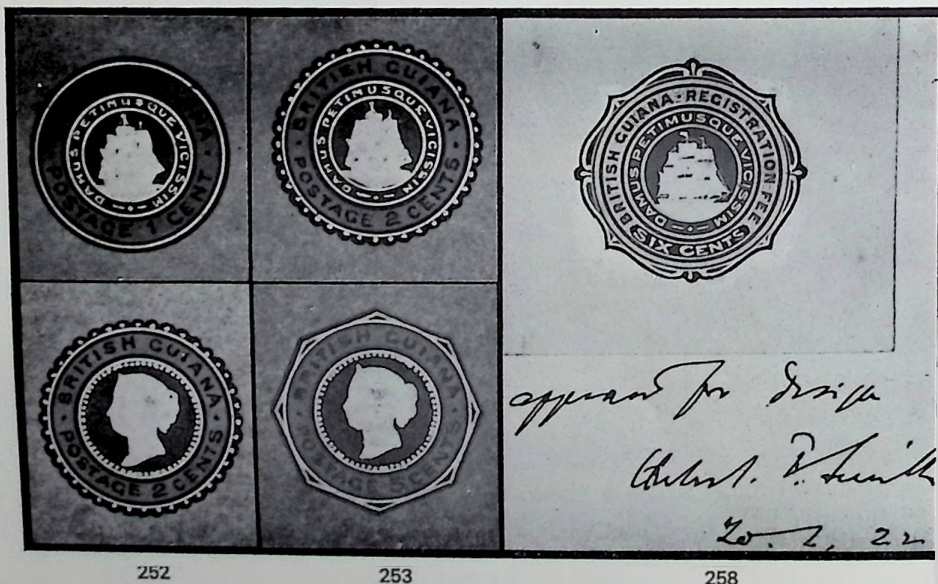 DAMUS PETIMUSQUE VICISSIM
POSTAGE 1 CENT
BRITISH GUIANA
DAMUS PETIMUSQUE VICISSIM
POSTAGE 2 CENTS
BRITISH GUIANA - REGISTRATION FEE
DAMUS PETIMUSQUE VICISSIM
SIX CENTS
BRITISH GUIANA
POSTAGE 2 CENTS
BRITISH GUIANA
POSTAGE CENTS
for design
20. 2. 22
252
253
258